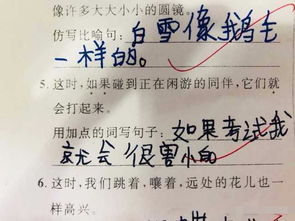 像许多大大小小的圆镜。
仿写比喻句：白雪像鹅毛
一样的。
5. 这时，如果碰到正在闲游的同伴，它们就
会打起来。
用加点的词写句子：如果考试我
就会很害怕的
6. 这时，我们跳着，嚷着，远处的花儿也一
样高兴。